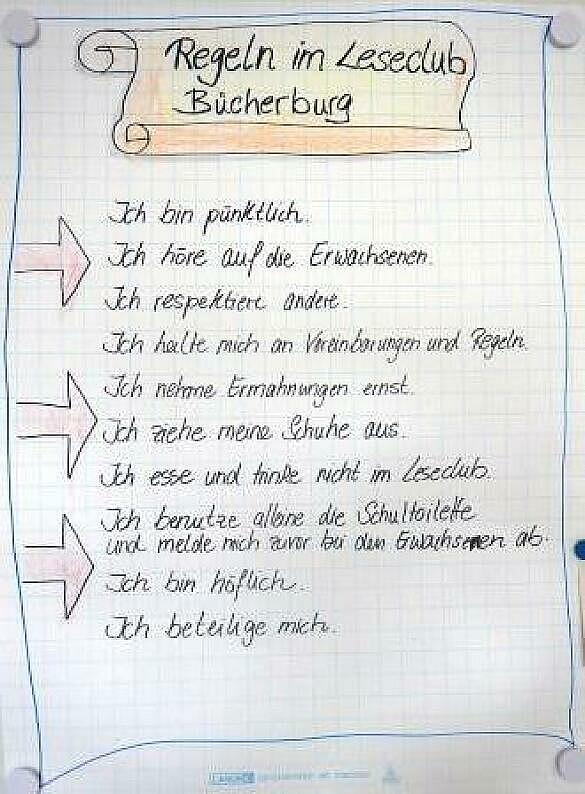 Regeln im Leseclub
Bücherburg
Ich bin pünktlich.
Ich höre auf die Erwachsenen.
Ich respektiere andere.
Ich halte mich an Vereinbarungen und Regeln.
Ich nehme Ermahnungen ernst.
Ich ziehe meine Schuhe aus.
Ich esse und trinke nicht im Leseclub.
Ich benutze alleine die Schultoilette
und melde mich zuvor bei den Erwachsenen ab.
Ich bin höflich.
Ich beteilige mich.